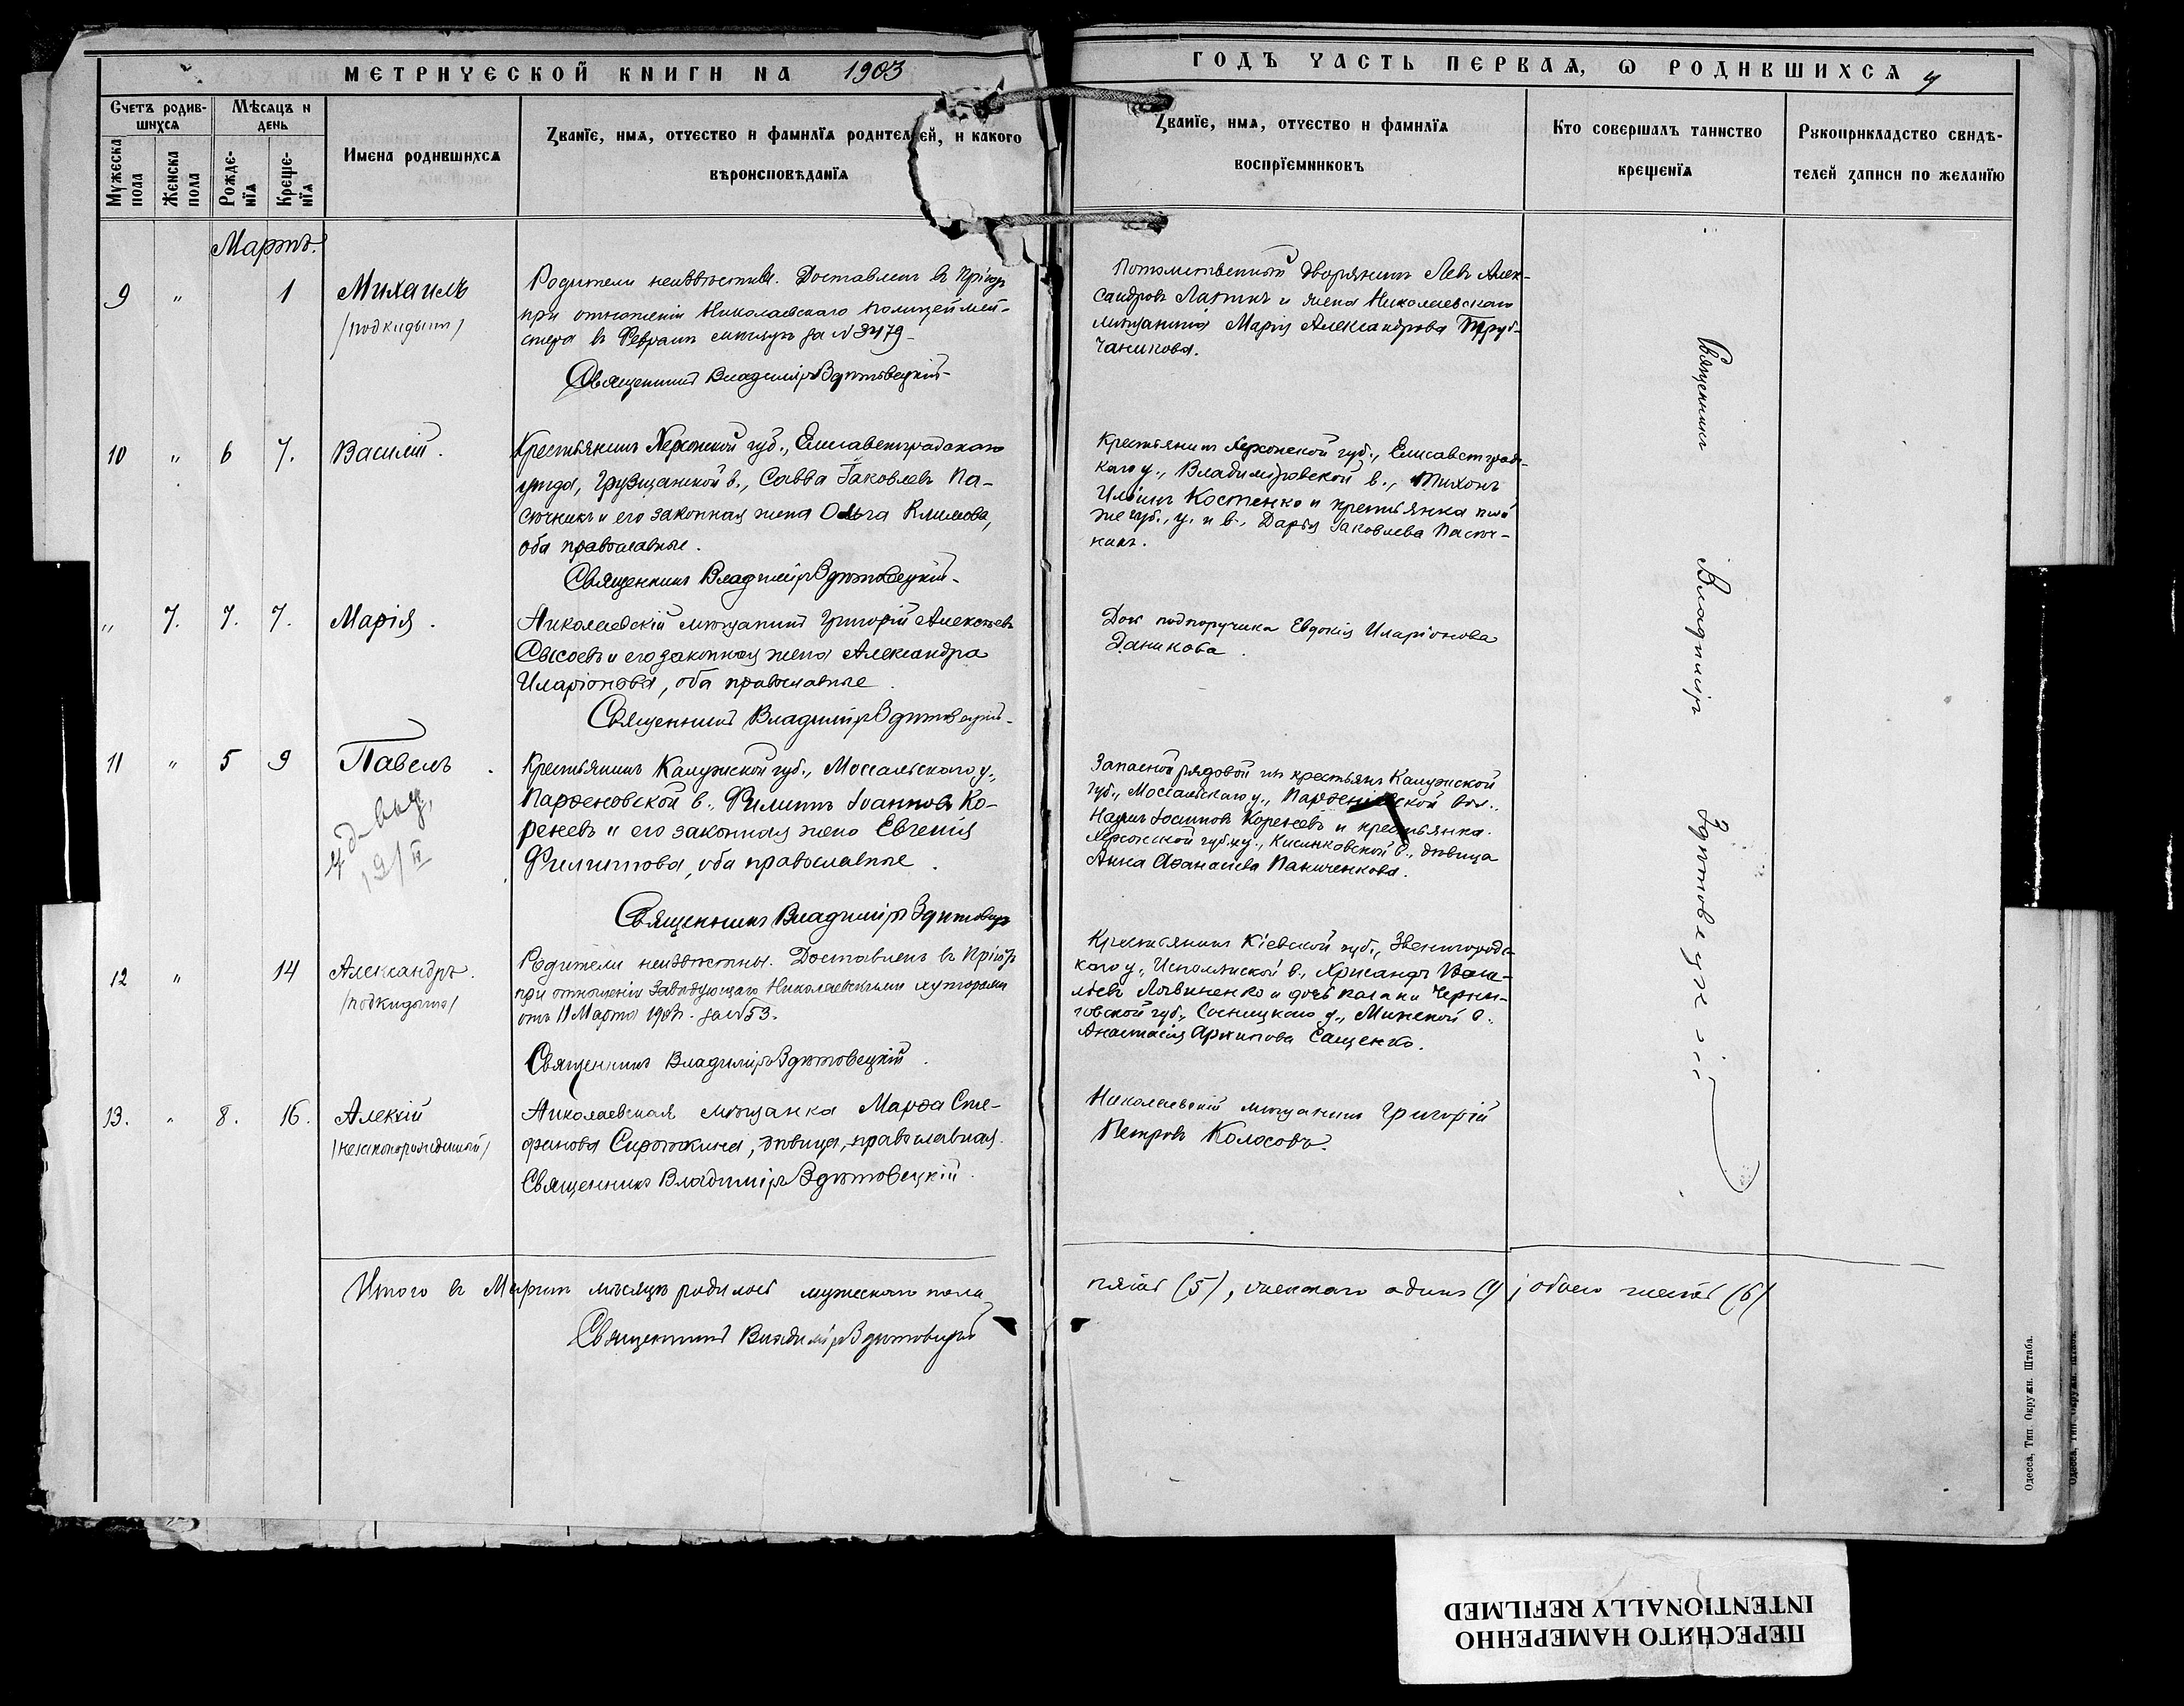 МЕТРИЧЕСКОЙ КНИГИ НА 1903
ГОДЪ ЧАСТЬ ПЕРВАѦ, Ѡ РОДИВШИХСѦ
Счетъ родив-
шихсѧ
Мѣсѧцъ и
день
Мужеска
пола
Женска
пола
Рожде-
нїѧ
Креще-
нїѧ
Имена родившихсѧ
Званїе, имѧ, отчество и фамилїѧ родителей, и какого
вѣроисповѣданїѧ
Званїе, имѧ, отчество и фамилїѧ
воспрїемниковъ
Кто совершалъ таинство
крещенїѧ
Рукоприкладство свидѣ-
телей записи по желанїю
Мартъ.
9 " 1 Михаилъ
/подкидышъ/
Родители неизвѣстны. Доставленъ въ Пріютъ
при отношеніи Николаевскаго полицеймей-
стера въ Февралѣ мѣсяцѣ за № 3479
Священникъ Владиміръ Здитовецкій
Потомственный дворянинъ Левъ Алек-
сандровъ и жена Николаевскаго
мѣщанина Марія Александрова Труб-
чанинова.
10 " 6 7. Василій.
Крестьянинъ Херсонской губ., Елисаветградскаго
уѣзда, Грузщанской в., Савва Іаковлевъ Па-
сѣчникъ и его законная жена Ольга Климова,
оба православные.
Священникъ Владиміръ Здитовецкій
Крестьянинъ Херсонской губ., Елисаветградс-
каго у., Владиміровской в., Тихонъ
Ильинъ Костенко и крестьянка той
же губ., у. и в., Дарія Іаковлева Пасѣч-
никъ.
" 7. 7. 7. Марія.
Николаевскій мѣщанинъ Григорій Алексѣевъ
Сысоевъ и его законная жена Александра
Иларіонова, оба православные.
Священникъ Владиміръ Здитовецкій
Дочь подпоручика Евдокія Иларіонова
Даникова.
11 " 5 9 Павелъ.
19/II
Крестьянинъ Калужской губ., Мосальскаго у.,
Парѳеновской в., Филиппъ Іоанновъ Ко-
реневъ и его законная жена Евгенія
Филиппова, оба православные.
Священникъ Владиміръ Здитовецкій
Запасной рядовой изъ крестьянъ Калужской
губ., Мосальскаго у., Парѳеновской вол.
Наумъ Іосифовъ Кореневъ и крестьянка
Херсонской губ. и у., Кисляковской в., дѣвица
Анна Аѳанасіева Паниченкова.
12 " 14 Александръ.
/подкидышъ/
Родители неизвѣстны. Доставленъ въ Пріютъ
при отношеніи Завѣдующаго Николаевскими хуторами
отъ 11 Марта 1903г. за № 53.
Священникъ Владиміръ Здитовецкій.
Крестьянинъ Кіевской губ., Звенигородс-
каго у., в., Хрисанфъ Васи-
льевъ Логвиненко и дочь казака Черни-
говской губ., Сосницкаго у., Минской в.
Анастасія Архипова Сащенко.
13. " 8. 16. Алексій
/незаконорожденный/
Николаевская мѣщанка Марѳа Сте-
фанова Сироткина, дѣвица, православная.
Священникъ Владиміръ Здитовецкій.
Николаевскій мѣщанинъ Григорій
Петровъ Колосовъ.
Священникъ Владиміръ Здитовецкій
Итого въ Мартѣ мѣсяцѣ родилось мужескаго пола
пять (5), женскаго одинъ (1), обоего шесть (6)
Священникъ Владиміръ Здитовецкій
Одесса, Тип. Окружн. Штаба.
ПЕРЕСНЯТО НАМЕРЕННО
INTENTIONALLY REFILMED